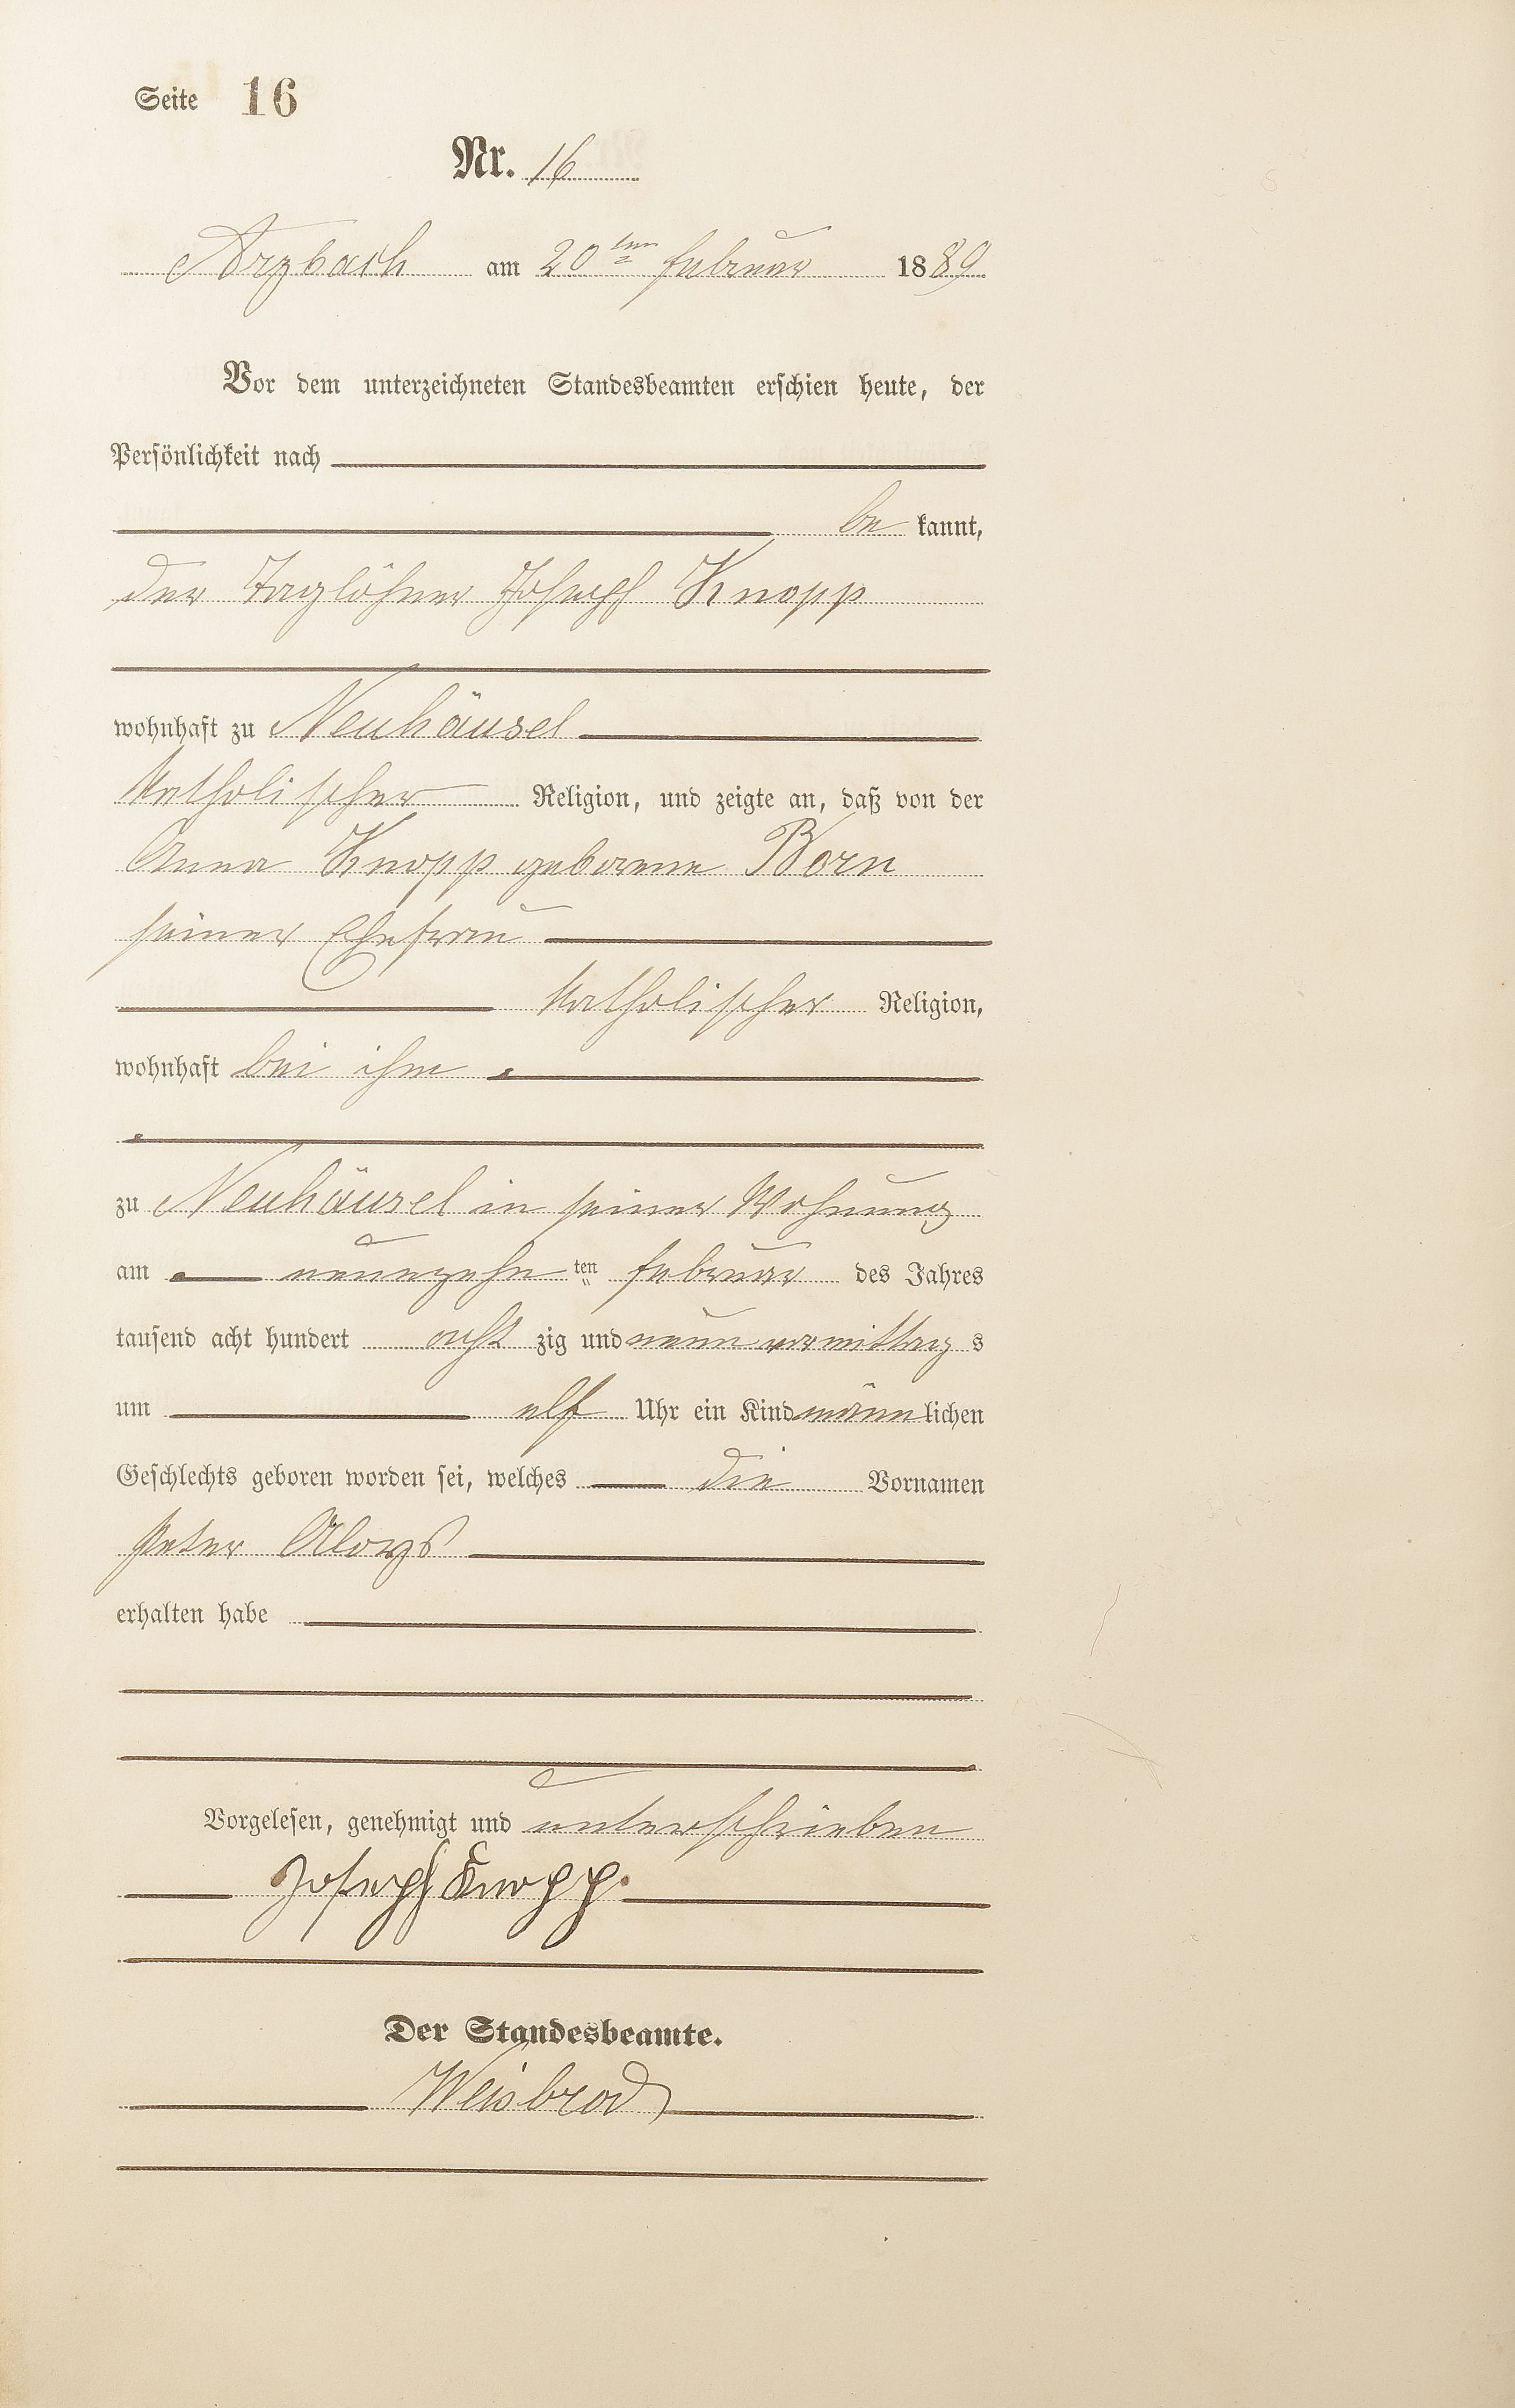 Seite 16
Nr. 16
Arzbach am 20ten Februar 1889
Vor dem unterzeichneten Standesbeamten erschien heute, der
Persönlichkeit nach
be kannt,
der Taglöhner Joseph Knopp
wohnhaft zu Neuhäusel
katholischer Religion, und zeigte an, daß von der
Anna Knopp geborene Born
seiner Ehefrau
katholischer Religion,
wohnhaft bei ihm
zu Neuhäusel in seiner Wohnung
am neunzehn ten Februar des Jahres
tausend acht hundert acht zig und neun vormittag s
um elf Uhr ein Kind männ lichen
Geschlechts geboren worden sei, welches die Vornamen
Peter Aloys
erhalten habe
Vorgelesen, genehmigt und unterschrieben
Joseph Knopp.
Der Standesbeamte.
Weisbrod